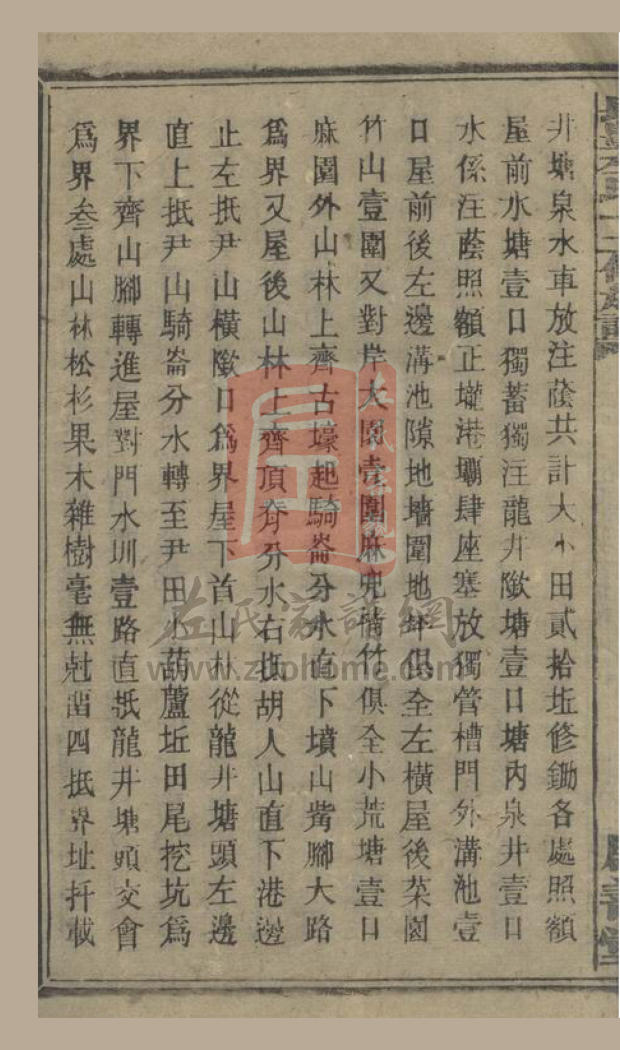 井塘泉水車放注蔭共計大小田貳拾坵修鋤各處照額
屋前水塘壹口獨蓄獨注龍井隞塘壹口塘內泉井壹口
水係注蔭照額正壠港壩肆座塞放獨管槽門外溝池壹
口屋前後左邊溝池隙地墻圍地坪俱全左橫屋後菜園
竹山壹圍又對岸大園壹圍麻兜槠竹俱全小荒塘壹口
麻園外山林上齊古壕起騎崙分水直下墳山觜腳大路
為界又屋後山林上齊頂脊分水右抵胡人山直下港邊
止左抵尹山橫隞口為界屋下首山林從龍井塘頭左邊
直上抵尹山騎崙分水轉至尹田小葫蘆坵田尾挖坑為
界下齊山腳轉進屋對門水圳壹路直抵龍井塘頭交會
為界叁處山林松杉果木雜樹毫無尅畄四抵界址扦載
左氏家譜網
www.zuohome.com